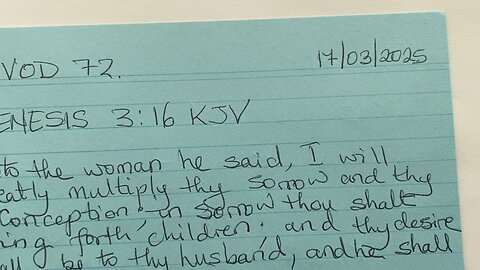 VOD 72. 17/03/2025
ENESIS 3:16 KJV
to the woman he said, I will
eatly multiply thy sorrow and thy
Conception; in sorrow thou shalt
ing forth children; and thy desire
all be to thy husband, and he shall